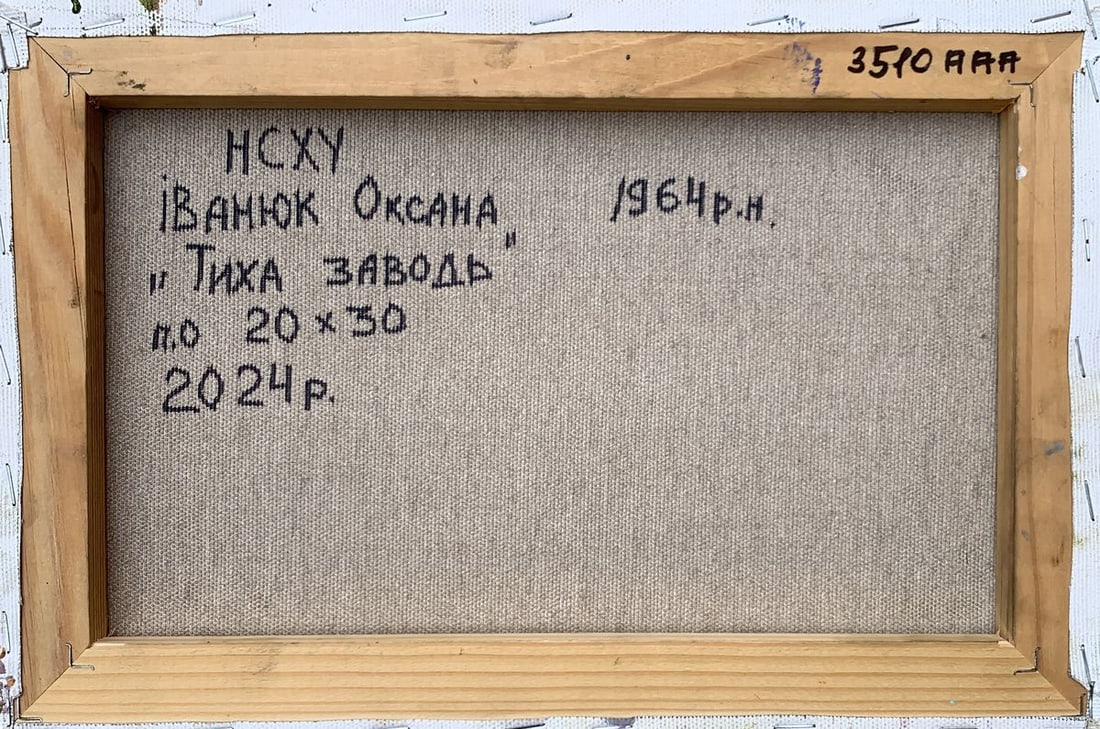 3510 ААА
НСХУ
іванюк Оксана, 1964р.н.
„Тиха заводь"
п.о 20×30
2024р.